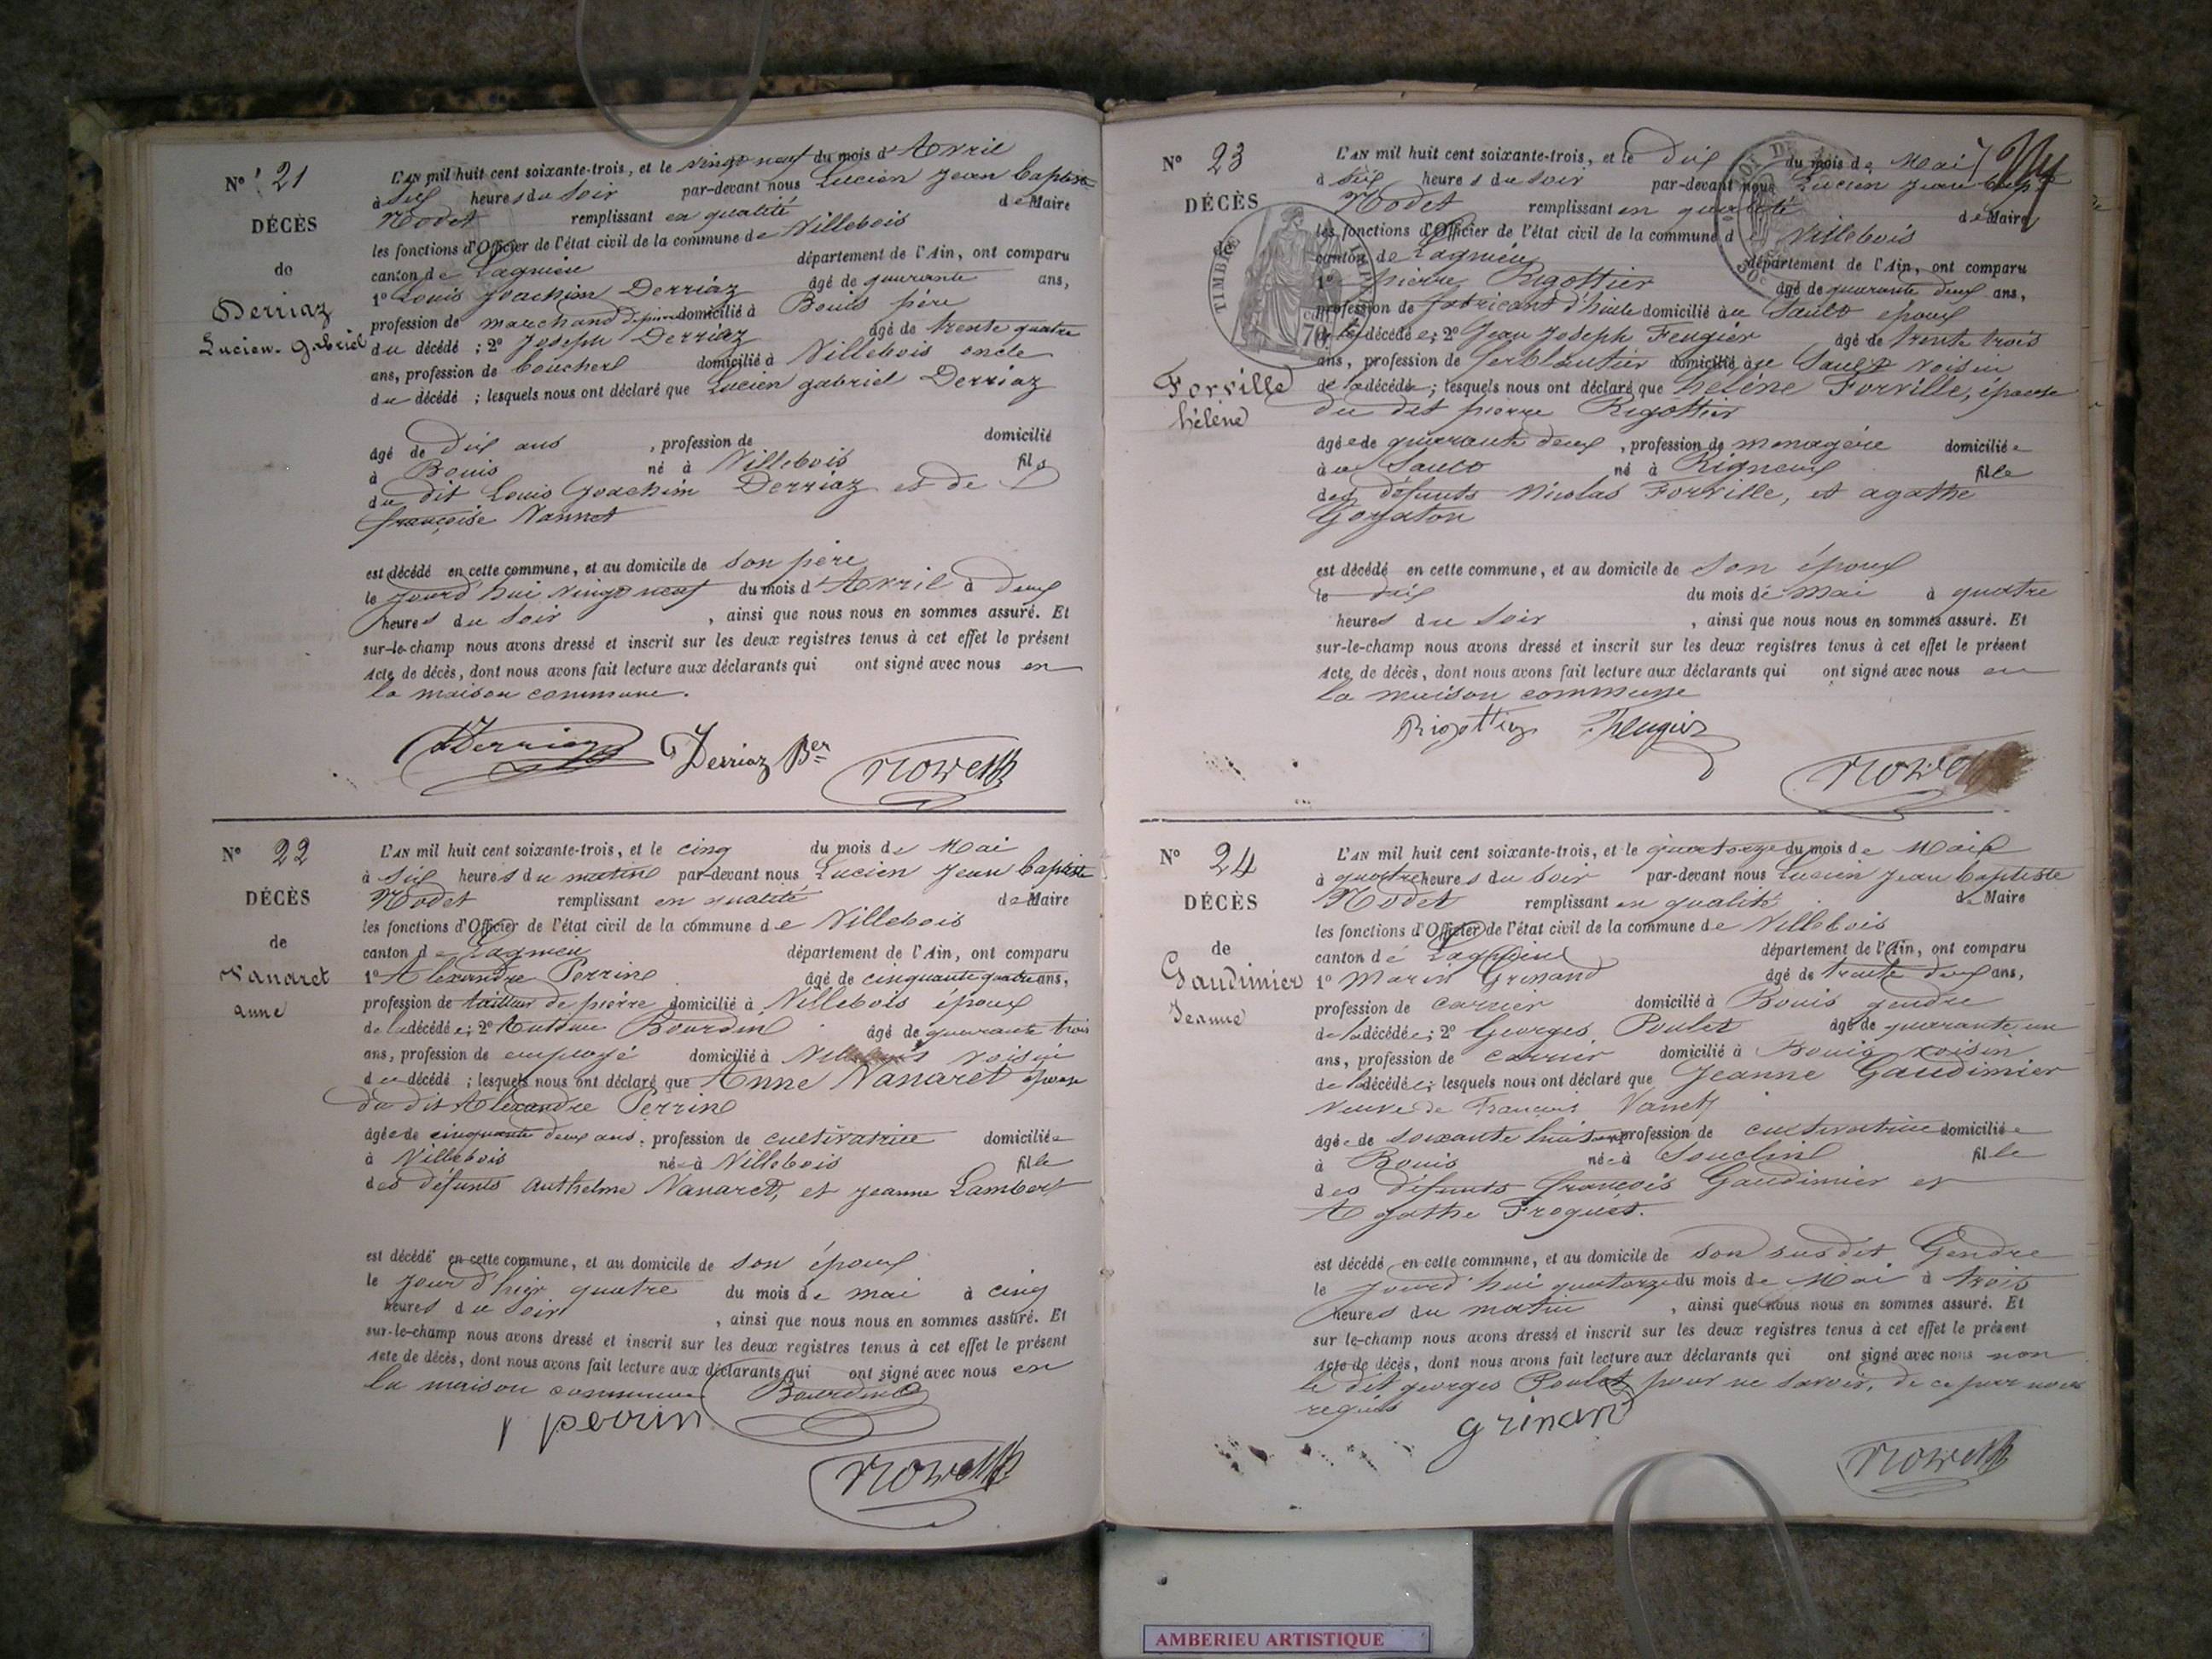 N° 21
DÉCÈS
de
Derriaz
Lucien-Gabriel
L'AN mil huit cent soixante-trois, et le vingt neuf du mois d'Avril
à Six heures du Soir par-devant nous Lucien Jean Baptiste
Nodet remplissant en qualité de Maire
les fonctions d'Officier de l'état civil de la commune de Villebois
canton de Lagnieu département de l'Ain, ont comparu
1° Louis Joachim Derriaz âgé de quarante ans,
profession de marchand domicilié à Bouis père
du décédé ; 2° Joseph Derriaz âgé de trente quatre
ans, profession de boucher domicilié à Villebois oncle
du décédé ; lesquels nous ont déclaré que Lucien gabriel Derriaz
âgé de Dix ans , profession de domicilié
à Bouis né à Villebois fils
du dit Louis Joachim Derriaz et de
françoise Vannet
est décédé en cette commune, et au domicile de son père
le jourd'hui vingt neuf du mois d'Avril à deux
heures du Soir , ainsi que nous nous en sommes assuré. Et
sur-le-champ nous avons dressé et inscrit sur les deux registres tenus à cet effet le présent
Acte de décès, dont nous avons fait lecture aux déclarants qui ont signé avec nous en
la maison commune.
Derriaz Derriaz Ber
N° 22
DÉCÈS
de
Vanaret
anne
L'AN mil huit cent soixante-trois, et le cinq du mois de Mai
à Six heures du matin par-devant nous Lucien Jean baptiste
Nodet remplissant en qualité de Maire
les fonctions d'Officier de l'état civil de la commune de Villebois
canton de Lagnieu département de l'Ain, ont comparu
1° Alexandre Perrin âgé de cinquante quatre ans,
profession de tailleur de pierre domicilié à Villebois époux
de la décédée ; 2° Bourdin âgé de quarante trois
ans, profession de employé domicilié à Villebois voisin
du décédé ; lesquels nous ont déclaré que Anne Vanaret épouse
du dit Alexandre Perrin
âgée de cinquante deux ans, profession de cultivatrice domiciliée
à Villebois née à Villebois fille
des défunts Anthelme Vanaret, et Jeanne Lambert
est décédé en cette commune, et au domicile de son époux
le jour d'hier quatre du mois de mai à cinq
heures du Soir , ainsi que nous nous en sommes assuré. Et
sur-le-champ nous avons dressé et inscrit sur les deux registres tenus à cet effet le présent
Acte de décès, dont nous avons fait lecture aux déclarants qui ont signé avec nous en
la maison commune Bourdin
perrin
N° 23
DÉCÈS
de
Forville
hélène
TIMBRE
L'AN mil huit cent soixante-trois, et le Dix du mois de Mai
à Six heures du Soir par-devant nous Lucien Jean
Nodet remplissant en qualité de Maire
les fonctions d'Officier de l'état civil de la commune de Villebois
canton de Lagnieu département de l'Ain, ont comparu
1° pierre Rigottier âgé de quarante deux ans,
profession de fabricant d'huile domicilié au Sault époux
de la décédée ; 2° Jean Joseph Feugier âgé de trente trois
ans, profession de ferblantier domicilié au Sault voisin
de la décédée ; lesquels nous ont déclaré que hélène Forville, épouse
du dit pierre Rigottier
âgée de quarante deux , profession de menagère domiciliée
au Sault né à Rigneux fille
des défunts Nicolas Forville, et agathe
est décédé en cette commune, et au domicile de son époux
le dix du mois de mai à quatre
heures du Soir , ainsi que nous nous en sommes assuré. Et
sur-le-champ nous avons dressé et inscrit sur les deux registres tenus à cet effet le présent
Acte de décès, dont nous avons fait lecture aux déclarants qui ont signé avec nous en
la maison commune
Rigottier Feugier
N° 24
DÉCÈS
de
Gaudimier
Jeanne
L'AN mil huit cent soixante-trois, et le quatorze du mois de Mai
à quatre heures du Soir par-devant nous Lucien Jean baptiste
Nodet remplissant en qualité de Maire
les fonctions d'Officier de l'état civil de la commune de Villebois
canton de Lagnieu département de l'Ain, ont comparu
1° Marin Grinand âgé de trente deux ans,
profession de carrier domicilié à Bouis gendre
de la décédée ; 2° Georges Poulet âgé de quarante un
ans, profession de carrier domicilié à Bouis voisin
de la décédée ; lesquels nous ont déclaré que Jeanne Gaudimier
veuve de François Vannet
âgée de soixante huit ans profession de cultivatrice domiciliée
à Bouis née à Souclin fille
des défunts françois Gaudimier et
Agathe
est décédé en cette commune, et au domicile de son susdit Gendre
le jourd'hui quatorze du mois de Mai à trois
heures du matin , ainsi que nous nous en sommes assuré. Et
sur le-champ nous avons dressé et inscrit sur les deux registres tenus à cet effet le présent
Acte de décès, dont nous avons fait lecture aux déclarants qui ont signé avec nous non
le dit georges Poulet pour ne savoir, de ce par nous
requis
grinand
AMBERIEU ARTISTIQUE